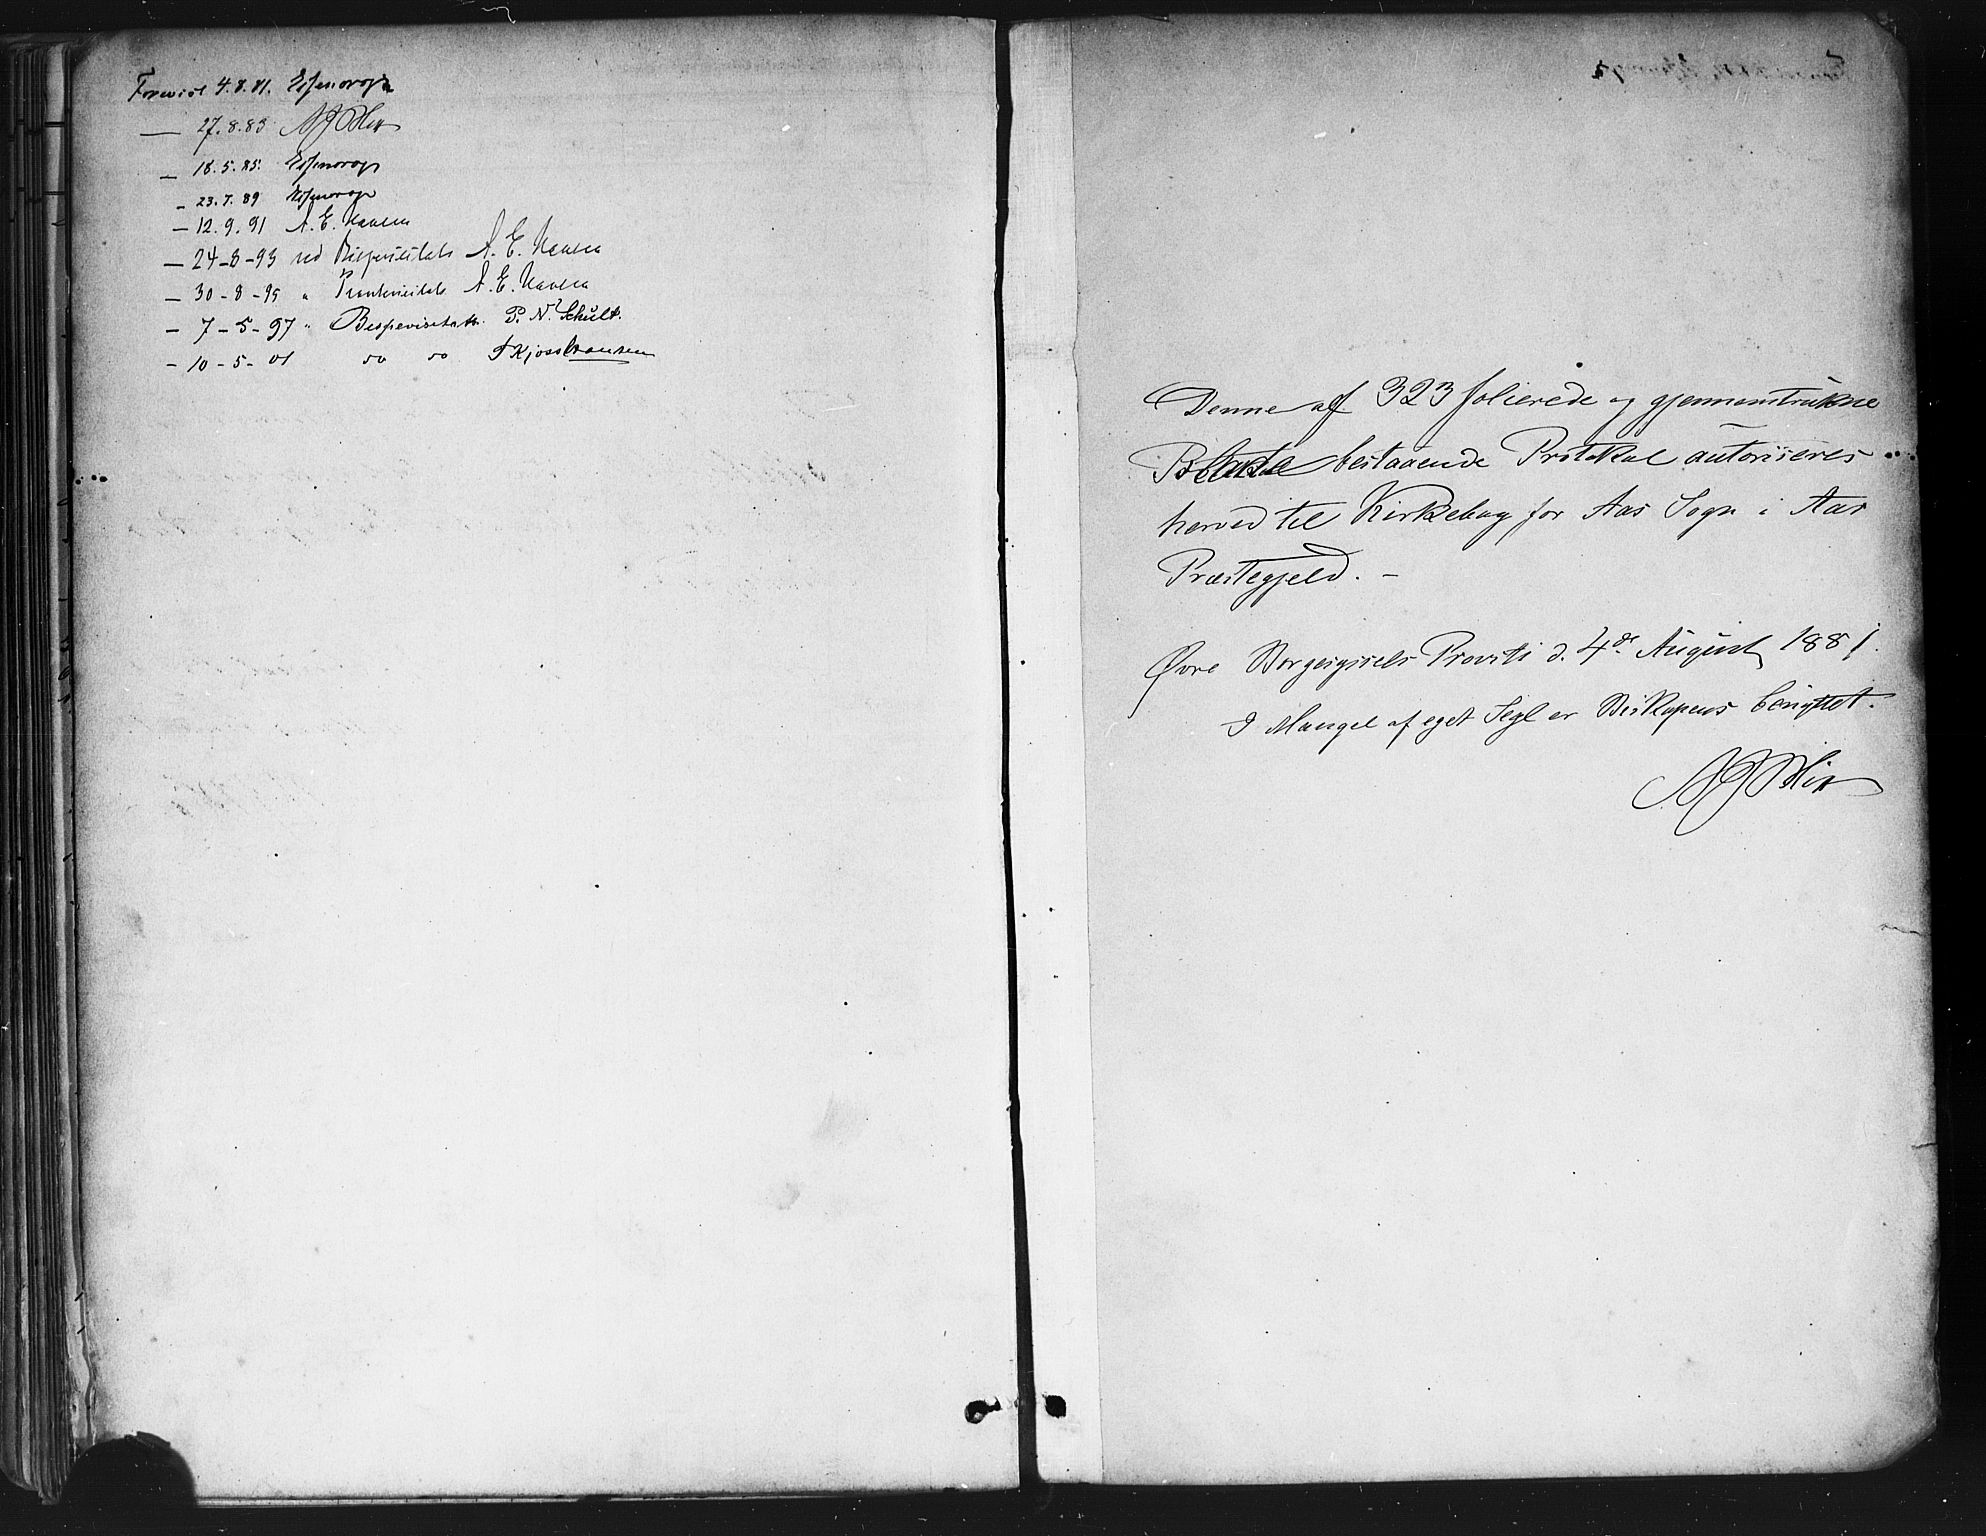 Forevist 4.8.81. Essendrop
— 27.8.83 NJBlix
— 18.5.85. Essendrop
— 23.7.89 Essendrop
— 12.9.91 A. E. Hansen
— 24-8-93 ved Bispevisitats A. E. Hansen
— 30-8-95 " Provstevisitats A. E. Hansen
— 7-5-97 " Bispevisitats. P. N. Schult.
— 10-5-01 do do Kjoss Hansen
Denne af 323 folierede og gjennemtrukne
Blade bestaaende Protokol autoriseres
herved til Kirkebog for Aas Sogn i Aas
Præstegjeld. –
Øvre Borgesyssels Provsti d. 4de August 1881.
I Mangel af eget Segl er Biskopens benyttet.
NJBlix